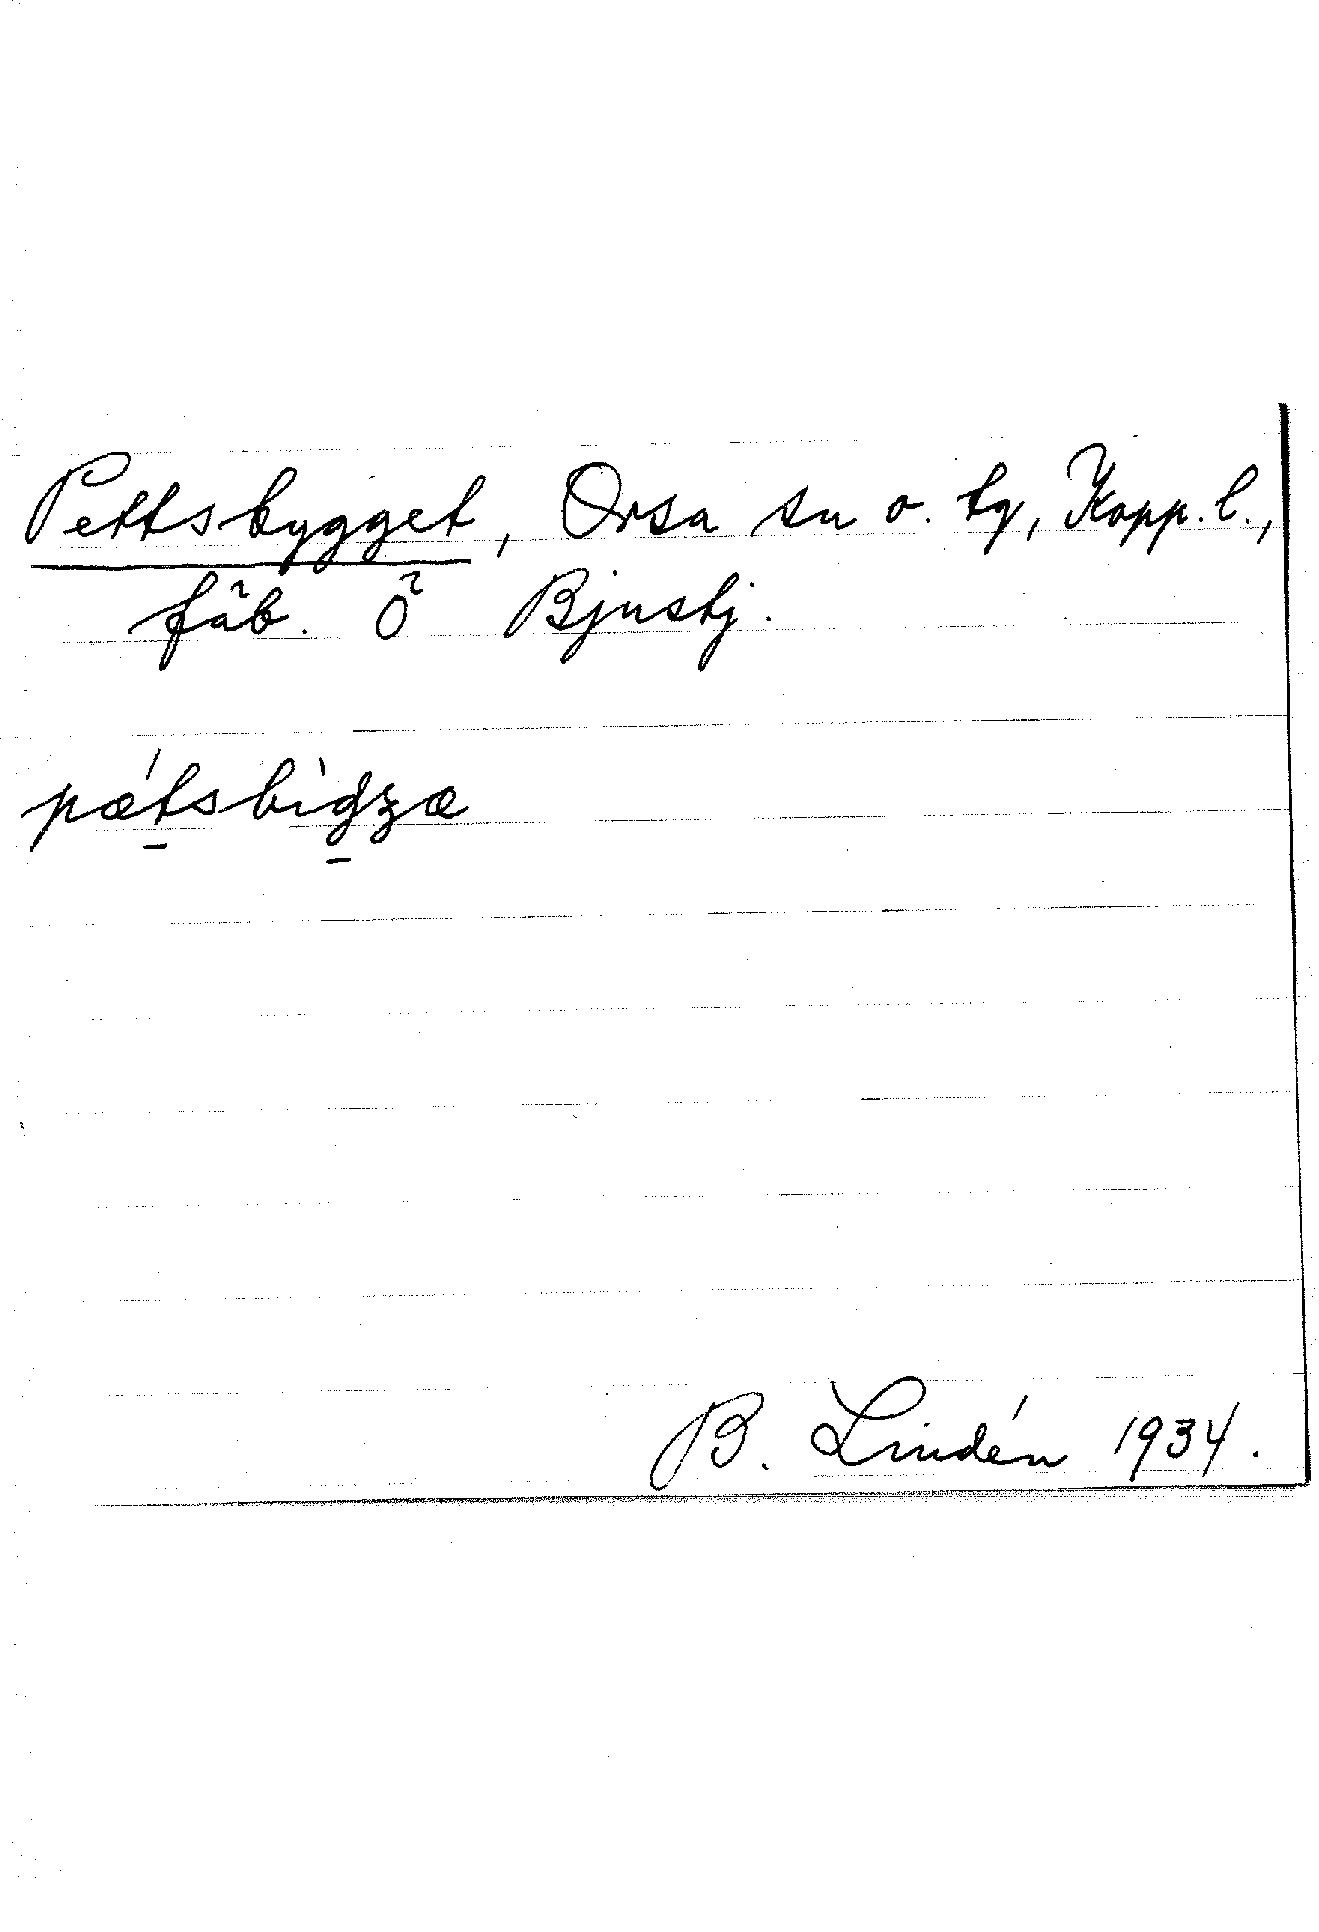 Pettsbygget, Orsa sn o. tg, Kopp. l.,
fäb. Ö Bjustj.
pǽtsbìdʒæ
B. Lindén 1934.